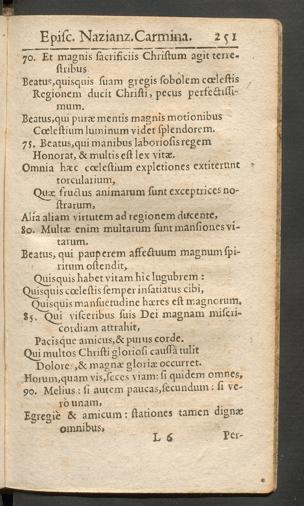 Episc. Nazianz. Carmina. 251
70. Et magnis sacrificiis Christum agit terre-
stribus
Beatus, quisquis suam gregis sobolem cœlestis
Regionem ducit Christi, pecus perfectissi-
mum.
Beatus, qui puræ mentis magnis motionibus
Cœlestium luminum videt splendorem.
75. Beatus, qui manibus laboriosis regem
Honorat, & multis est lex vitæ.
Omnia hæc cœlestium expletiones extiterunt
torcularium,
Quæ fructus animarum sunt exceptrices no-
strarum,
Alia aliam virtutem ad regionem ducente,
80. Multæ enim multarum sunt mansiones vi-
tarum.
Beatus, qui pauperem affectuum magnum spi-
ritum ostendit,
Quisquis habet vitam hic lugubrem:
Quisquis cœlestis semper insatiatus cibi,
Quisquis mansuetudine hæres est magnorum,
85. Qui visceribus suis Dei magnam miseri-
cordiam attrahit,
Pacisque amicus, & purus corde.
Qui multos Christi gloriosi caussâ tulit
Dolores, & magnæ gloriæ occurret.
Horum, quam vis, seces viam: si quidem omnes,
90. Melius: si autem paucas, secundum: si ve-
ro unam,
Egregiè & amicum: stationes tamen dignæ
omnibus,
L 6 Per-